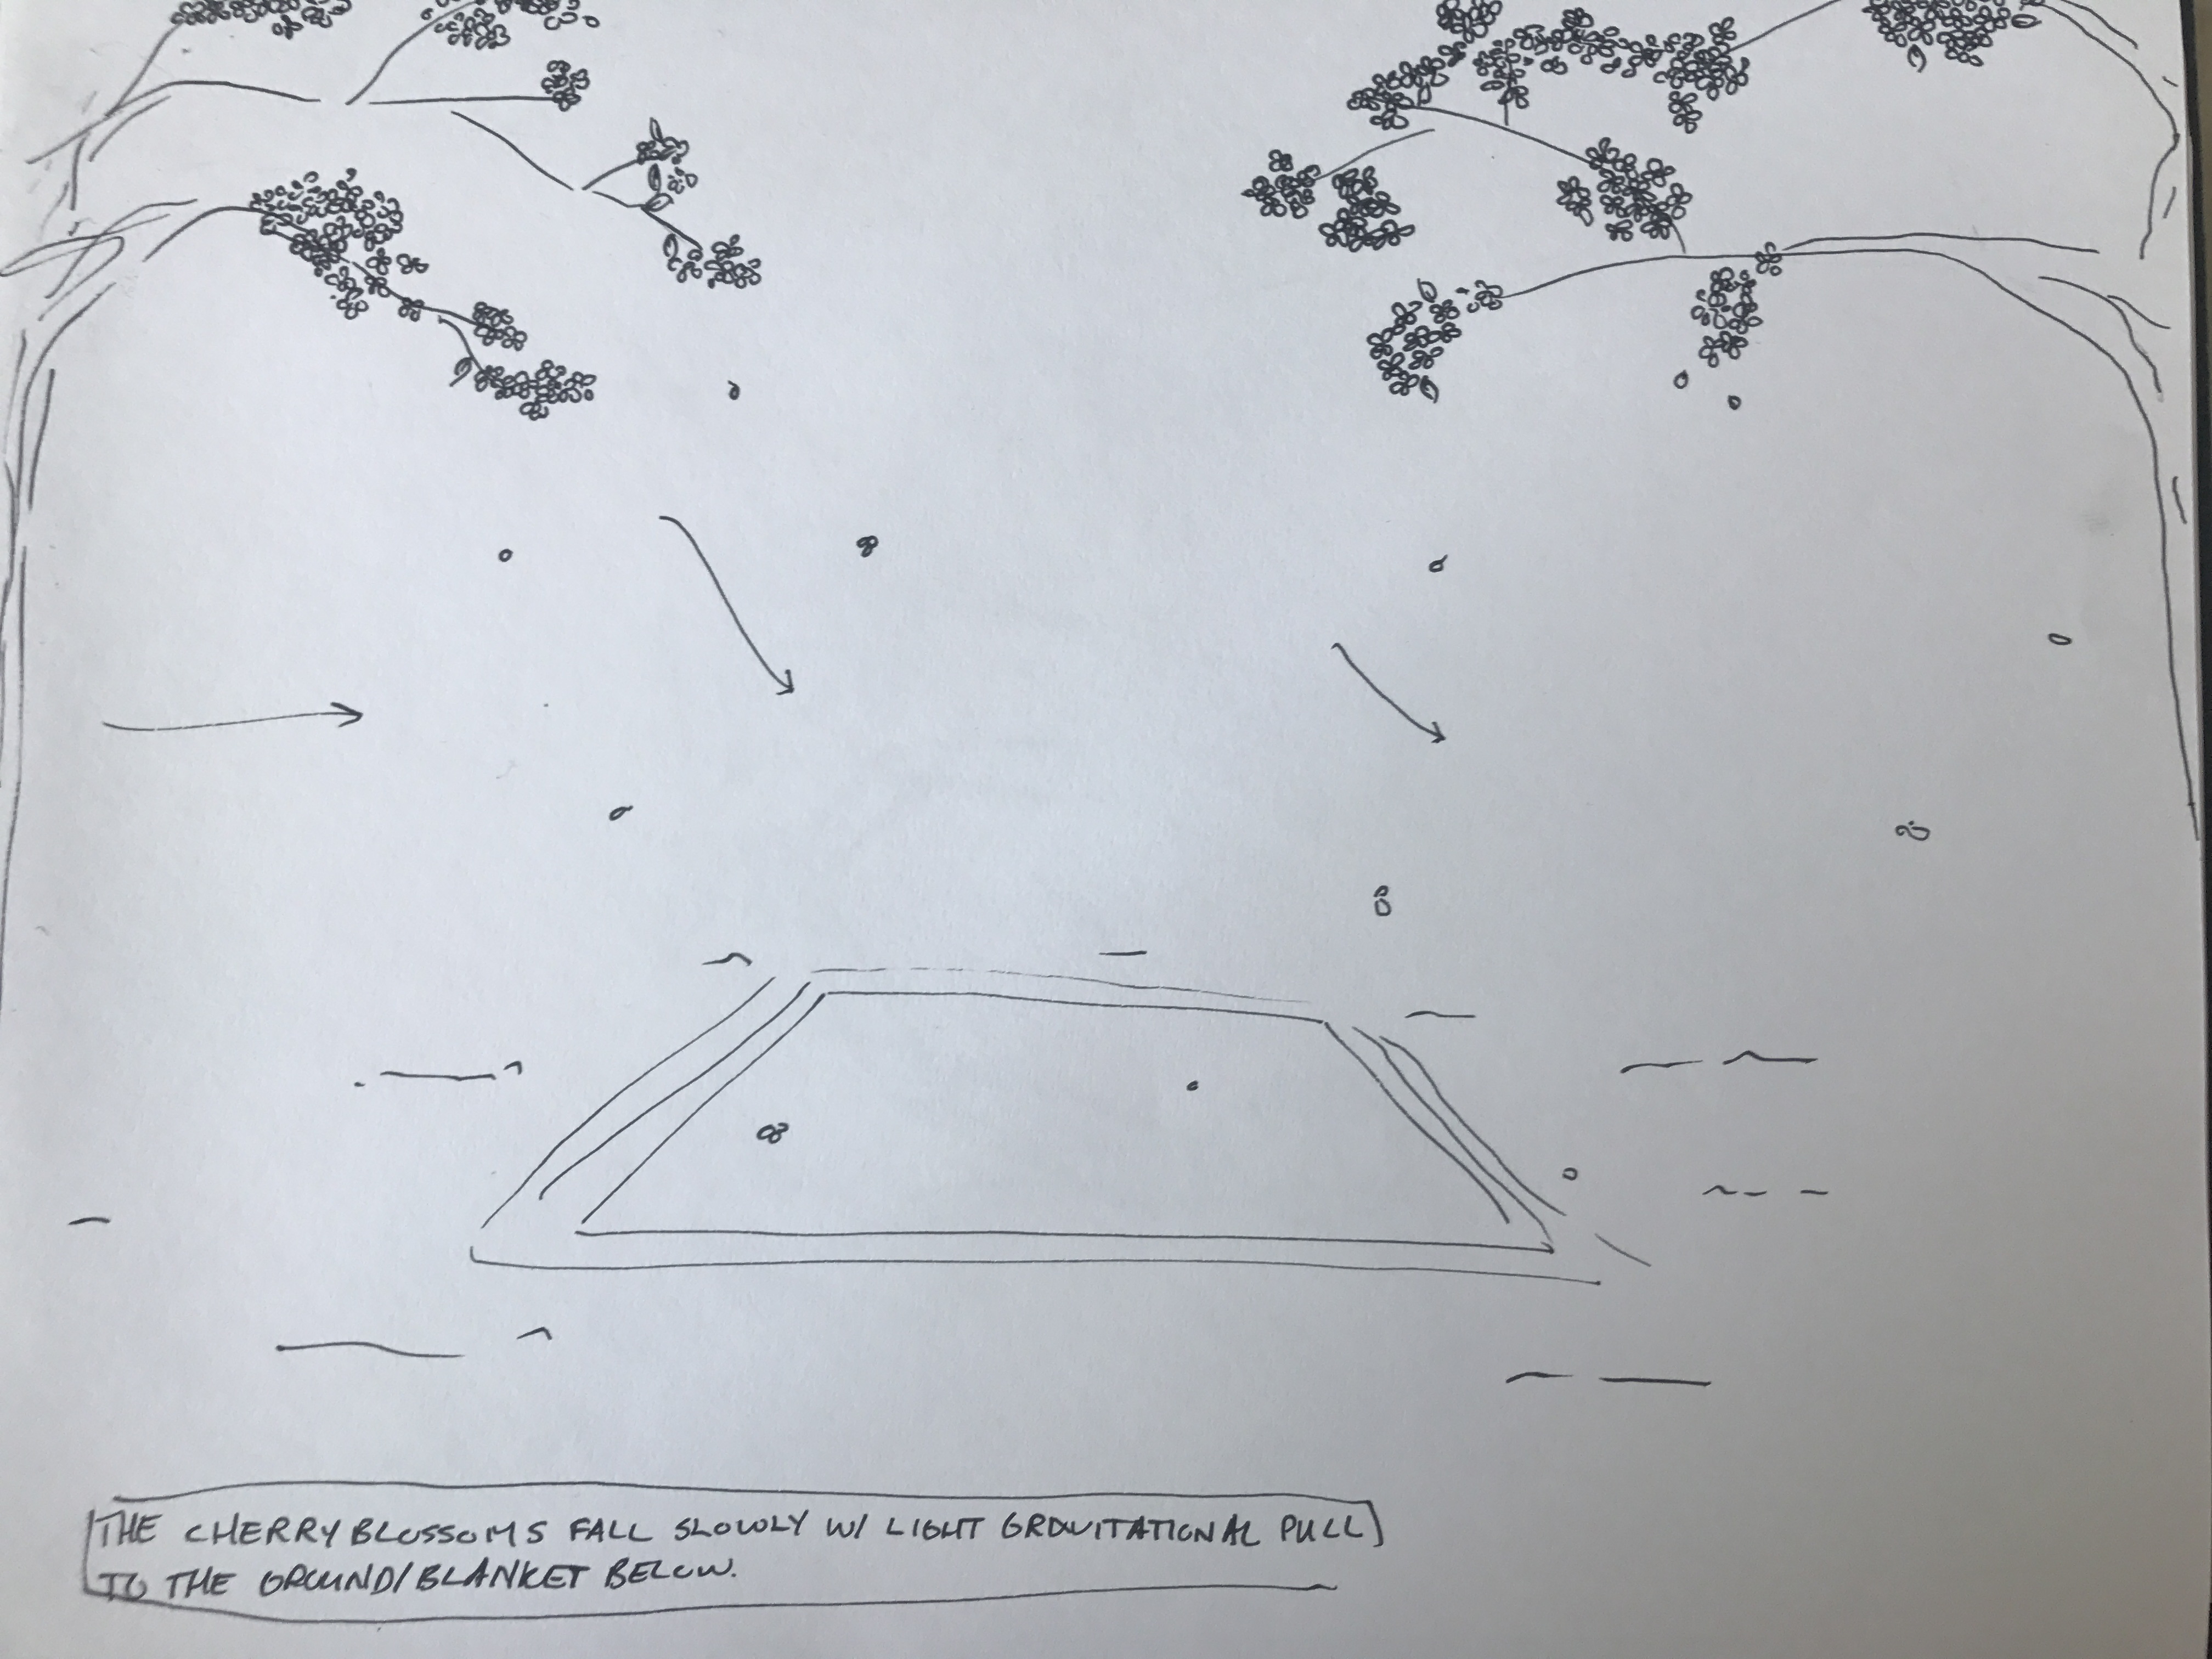 THE CHERRY BLOSSOMS FALL SLOWLY W/ LIGHT GRAVITATIONAL PULL
TO THE GROUND/BLANKET BELOW.